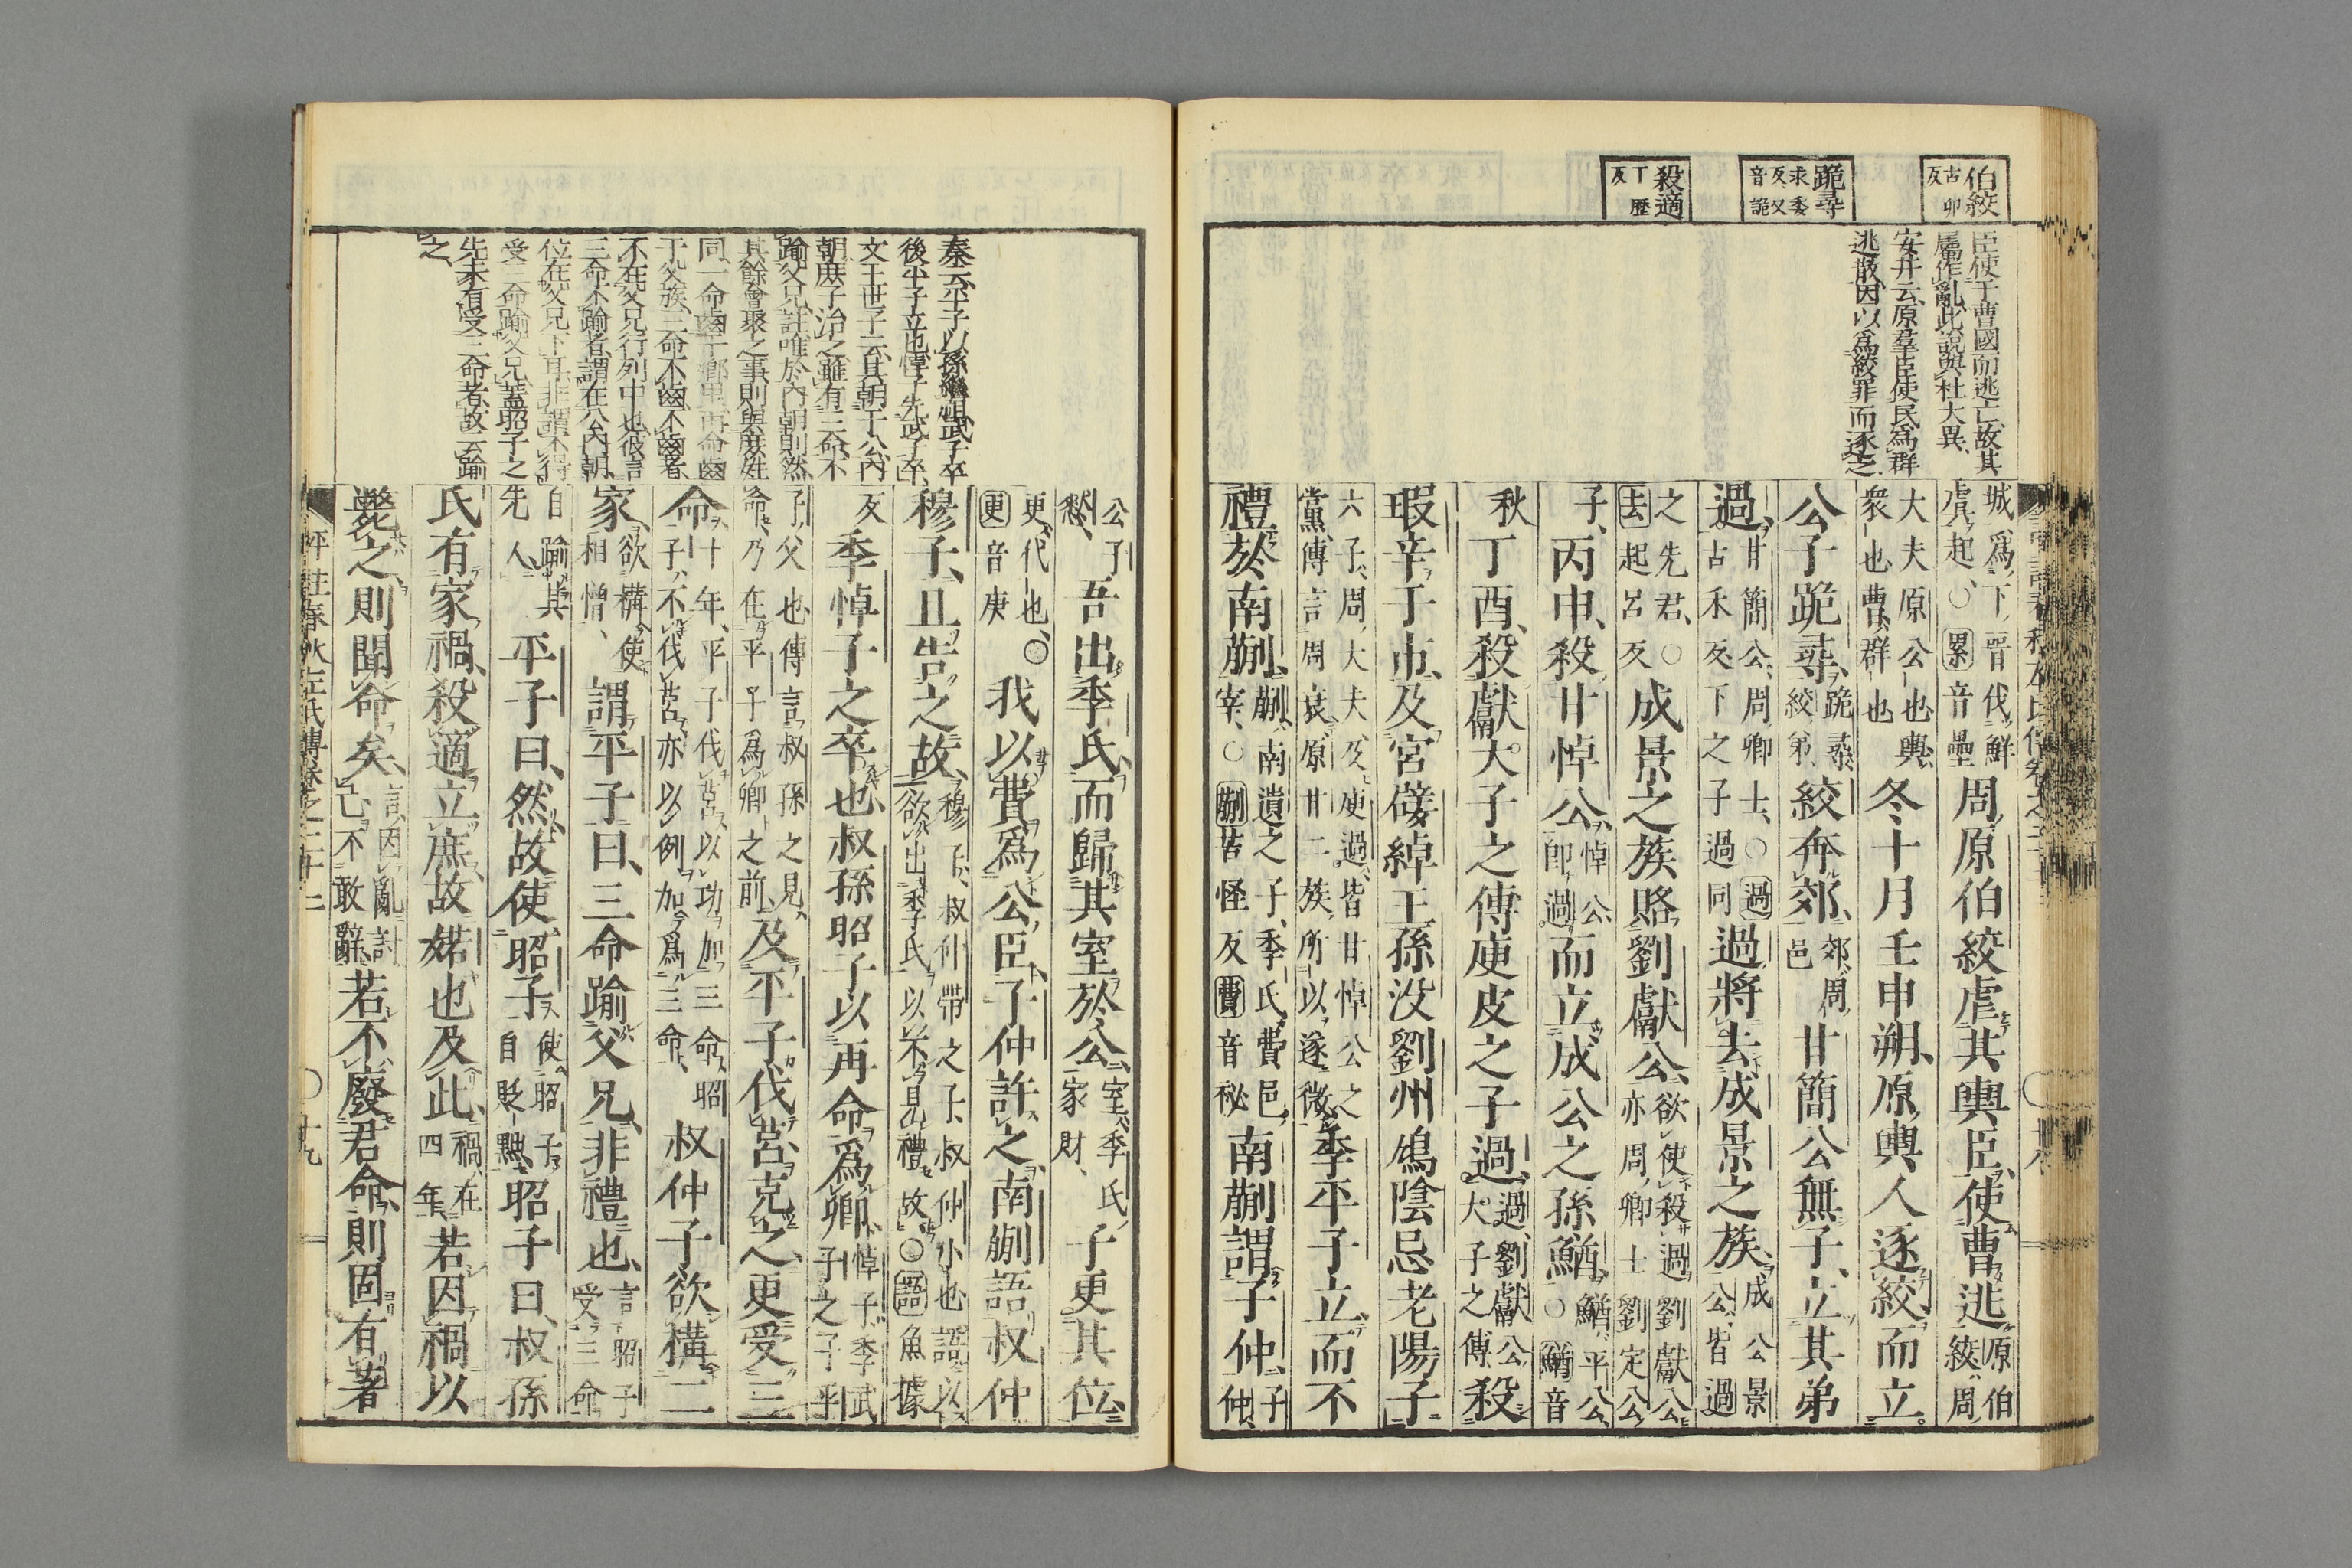 伯絞 古卯反
跪尋 求委反又音詭
殺適 丁歷反
臣使于曹國而逃亡故其
屬作亂此説與杜大異
安井云原羣臣使民爲群
逃散因以爲絞罪而逐之
城爲下晉伐鮮虞起○累音壘周原伯絞虐其輿臣使曹逃原伯絞周
大夫原公也輿衆也曹群也冬十月壬申朔原輿人逐絞而立
公子跪尋跪尋絞弟絞奔郊郊周邑甘簡公無子立其弟
過甘簡公周卿士○過古禾反下之子過同過將去成景之族成公景公皆過
之先君○去起呂反成景之族賂劉獻公欲使殺過劉獻公亦周卿士劉定公
子丙申殺甘悼公悼公即過而立成公之孫鰌鰌平公○鰌音
秋丁酉殺獻大子之傅庾皮之子過過劉獻公大子之傅殺
瑕辛于市及宮嬖綽王孫没劉州鳩陰忌老陽子
六子周大夫及庾過皆甘悼公之黨傳言周衰原甘二族所以遂微季平子立而不
禮於南蒯蒯南遺之子季氏費邑宰○蒯苦怪反費音秘南蒯謂子仲子仲
秦云平子以孫繼祖武子卒
後平子立也悼子先武子卒
文王世子云其朝于公内
朝庶子治之雖有三命不
踰父兄註唯於内朝則然
其餘會聚之事則與庶姓
同一命齒于鄉里再命齒
于父族三命不齒不齒者
不在父兄行列中也彼言
三命不踰者謂在公内朝
位在父兄下耳非謂不得
受三命踰父兄蓋昭子之
先未有受三命者故云踰
之
公子憖吾出季氏而歸其室於公室季氏家財子更其位
更代也○更音庚我以費爲公臣子仲許之南蒯語叔仲
穆子且告之故穆子叔仲帶之子叔仲小也語以欲出季氏以不見禮故○語魚據
反季悼子之卒也叔孫昭子以再命爲卿悼子季武子之子平
子父也傳言叔孫之見命乃在平子爲卿之前及平子伐莒克之更受三
命十年平子伐莒以功加三命昭子不伐莒亦以例加爲三命叔仲子欲構二
家欲構使相憎謂平子曰三命踰父兄非禮也言昭子受三命
自踰其先人平子曰然故使昭子使昭子自貶黜昭子曰叔孫
氏有家禍殺適立庶故婼也及此禍在四年若因禍以
斃之則聞命矣言因亂討己不敢辭若不廢君命則固有著
評註春秋左氏傳卷之二十二 ○十九